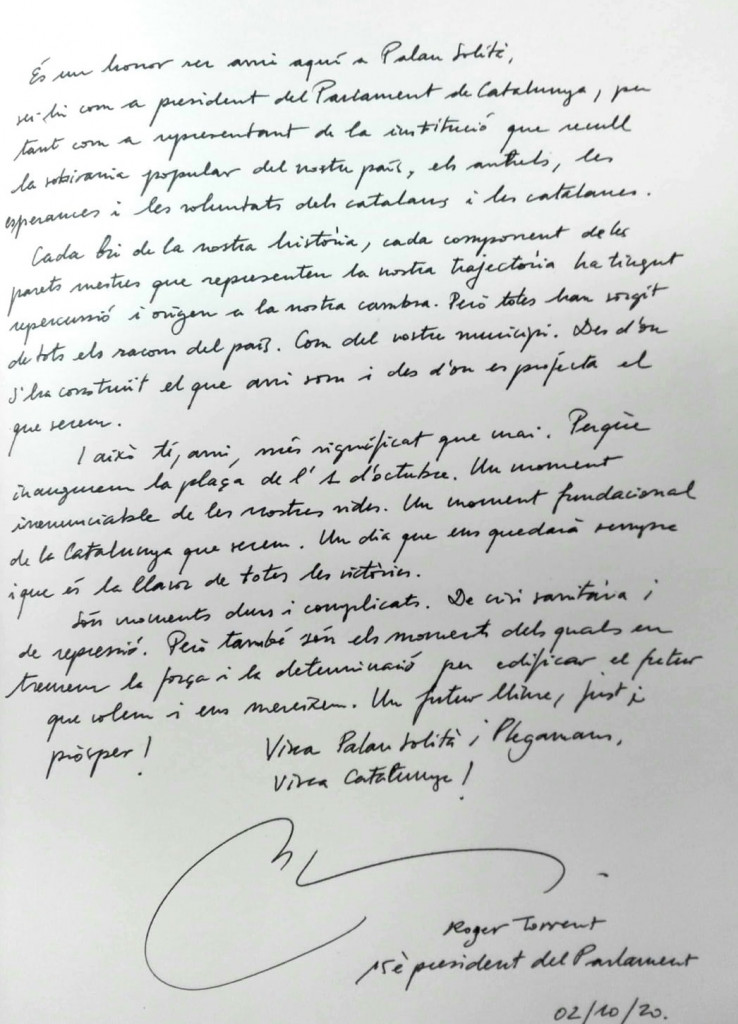 És un honor ser avui aquí a Palau Solità,
ser-hi com a president del Parlament de Catalunya, per
tant com a representant de la institució que recull
la sobirania popular del nostre país, els anhels, les
esperances i les voluntats dels catalans i les catalanes.
Cada bri de la nostra història, cada component de les
parets mestres que representen la nostra trajectòria ha tingut
repercussió i origen a la nostra cambra. Però totes han sorgit
de tots els racons del país. Com del vostre municipi. Des d'on
s'ha construït el que avui som i des d'on es projecta el
que serem.
I això té, avui, més significat que mai. Perquè
inaugurem la plaça de l'1 d'octubre. Un moment
irrenunciable de les nostres vides. Un moment fundacional
de la Catalunya que serem. Un dia que ens quedarà sempre
i que és la llavor de totes les victòries.
Són moments durs i complicats. De crisi sanitària i
de repressió. Però també són els moments dels quals en
traiem la força i la determinació per edificar el futur
que volem i ens mereixem. Un futur lliure, just i
pròsper!
Visca Palau Solità i Plegamans,
Visca Catalunya!
Roger Torrent
15è president del Parlament
02/10/20.